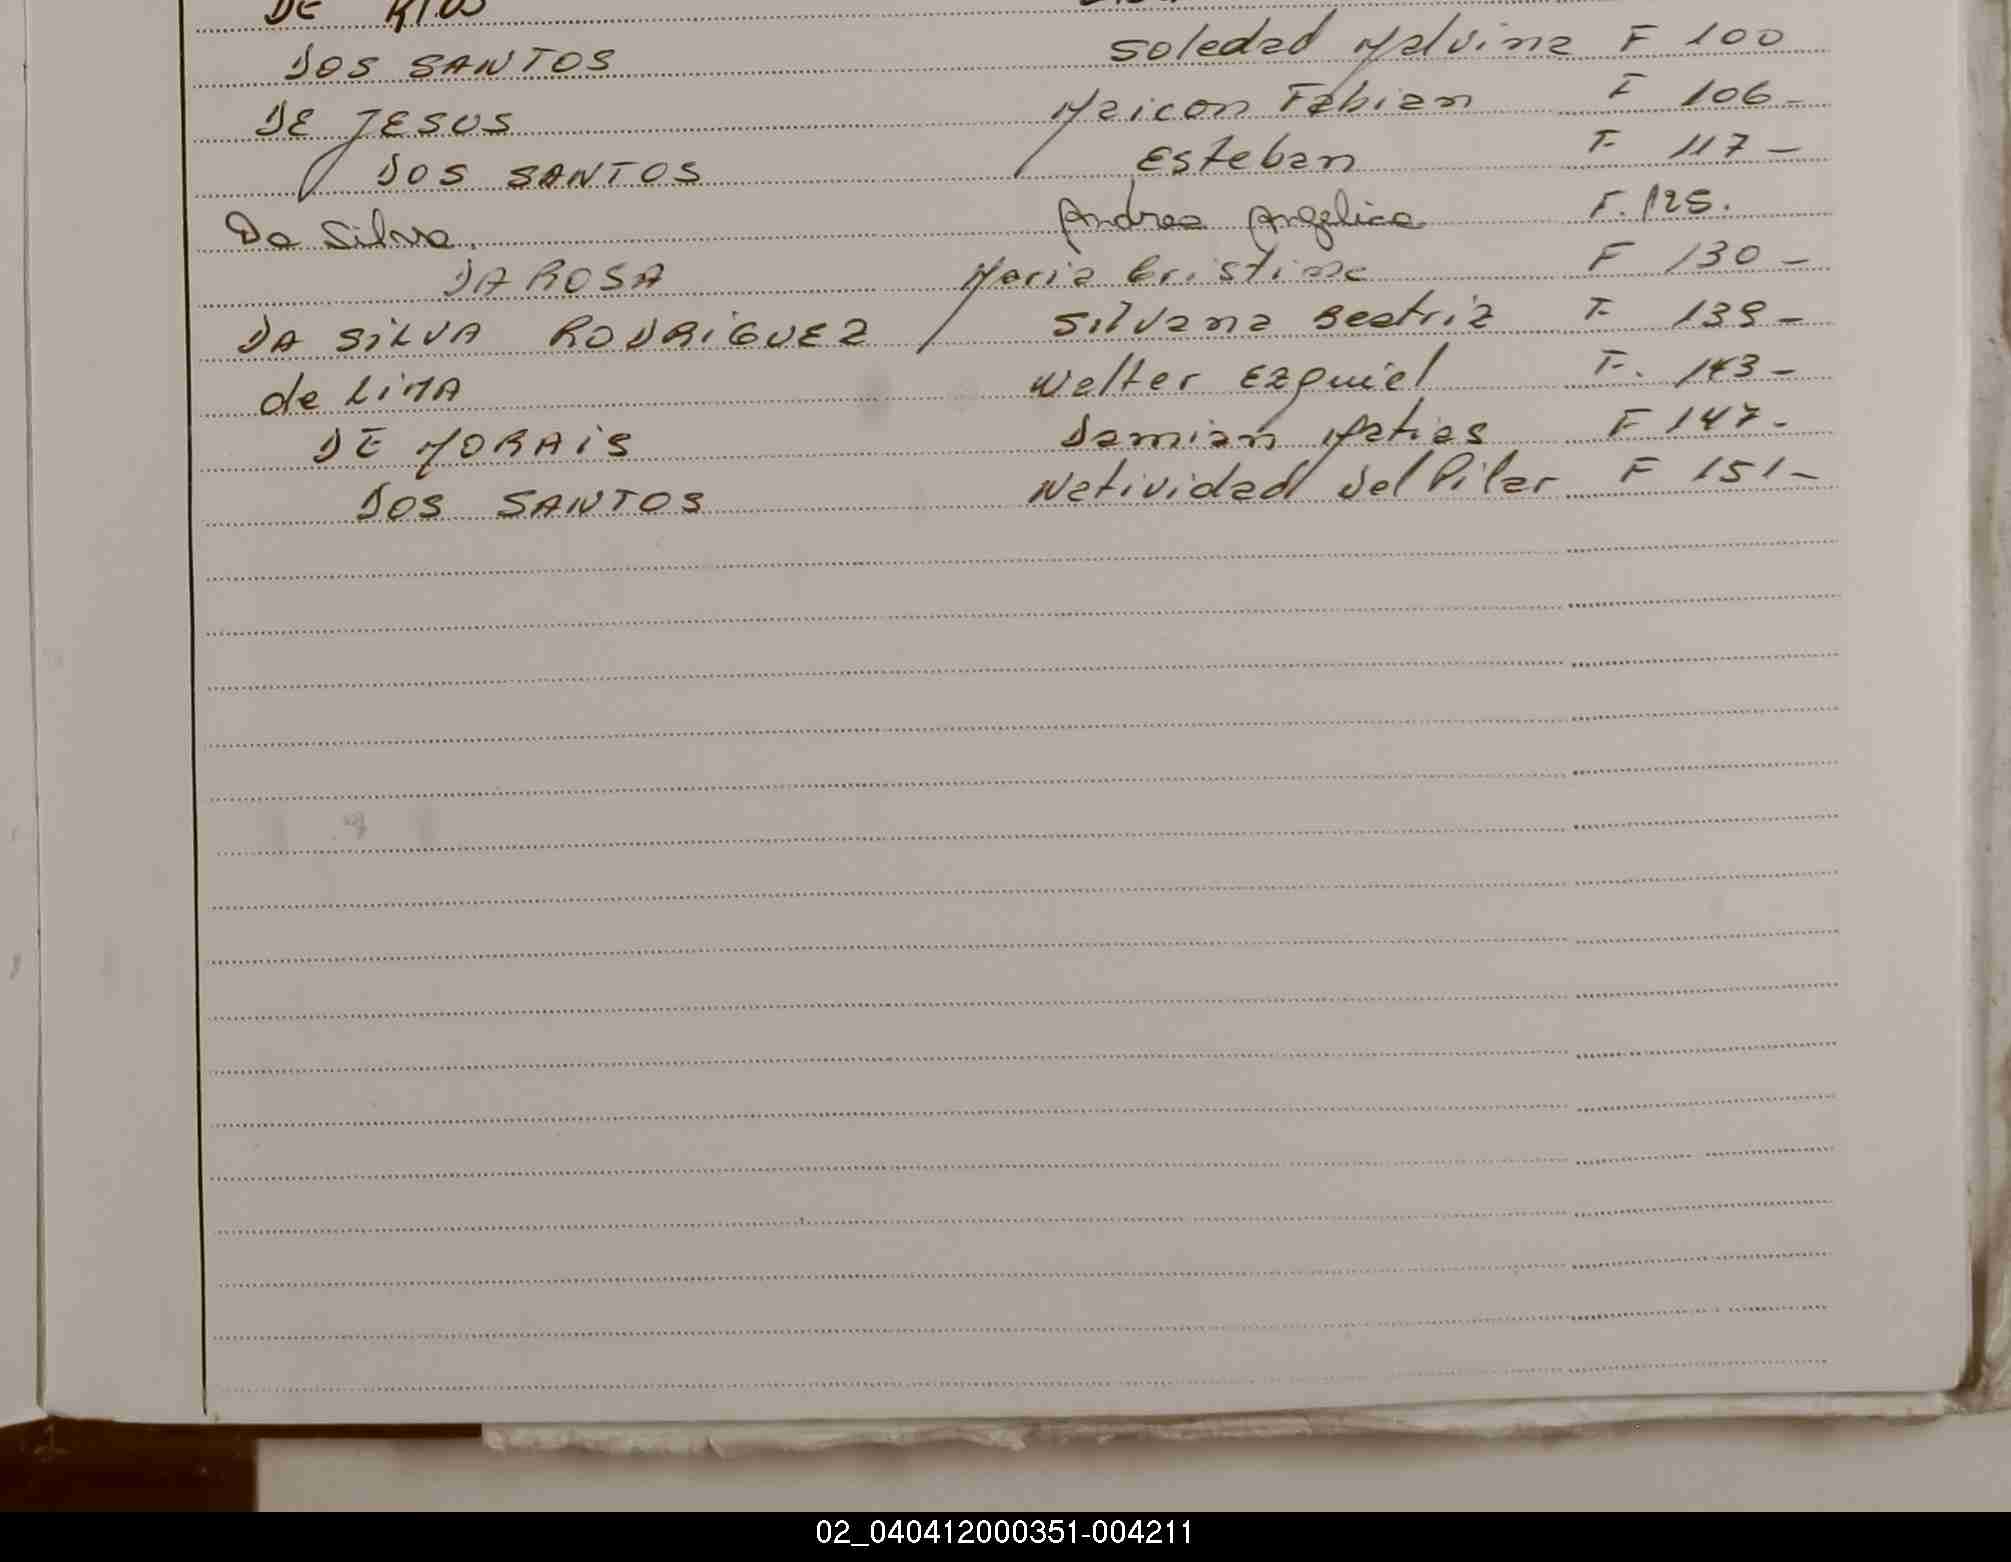 DOS SANTOS Soledad Malvina F 100
DE JESUS Maicon Fabian F 106-
DOS SANTOS Esteban F 117-
Da Silva. Andrea Angelica F. 125.
DA ROSA Maria Cristina F 130-
DA SILVA RODRIGUEZ Silvana Beatriz F 139-
de LIMA Walter Ezquiel F. 143-
DE MORAIS Damian Matias F 147-
DOS SANTOS Natividad del Pilar F 151-
02_040412000351-004211